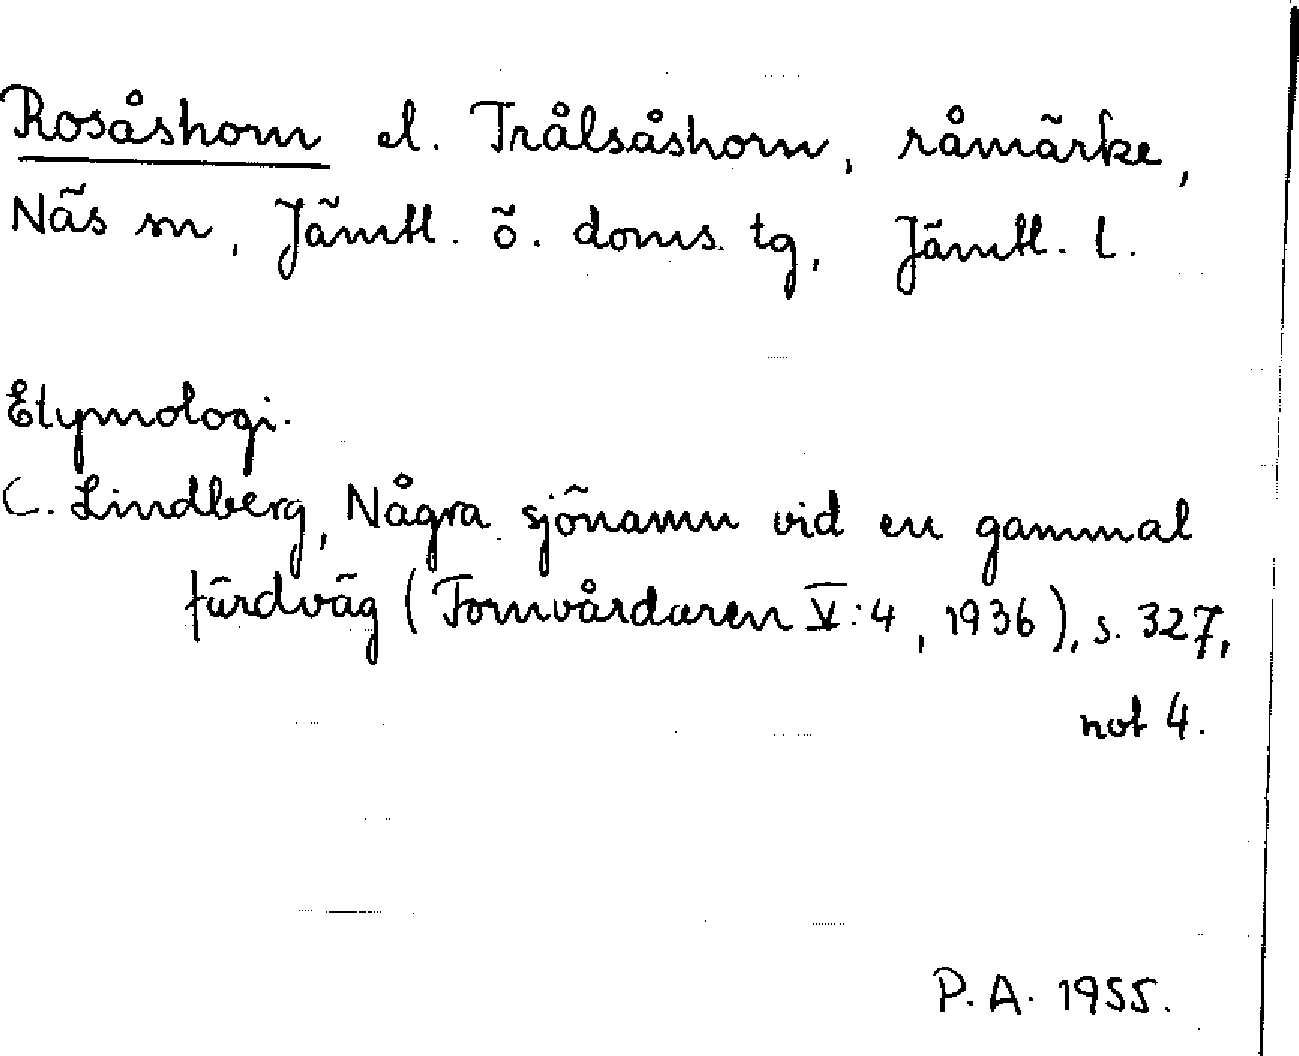 Rosåshorn el. Trålsåshorn, råmärke,
Näs sn, Jämtl. ö. doms. tg, Jämtl. l.
Etymologi.
C. Lindberg, Några sjönamn vid en gammal
färdväg (Fornvårdaren V:4, 1936), s. 327,
not 4.
P. A. 1955.